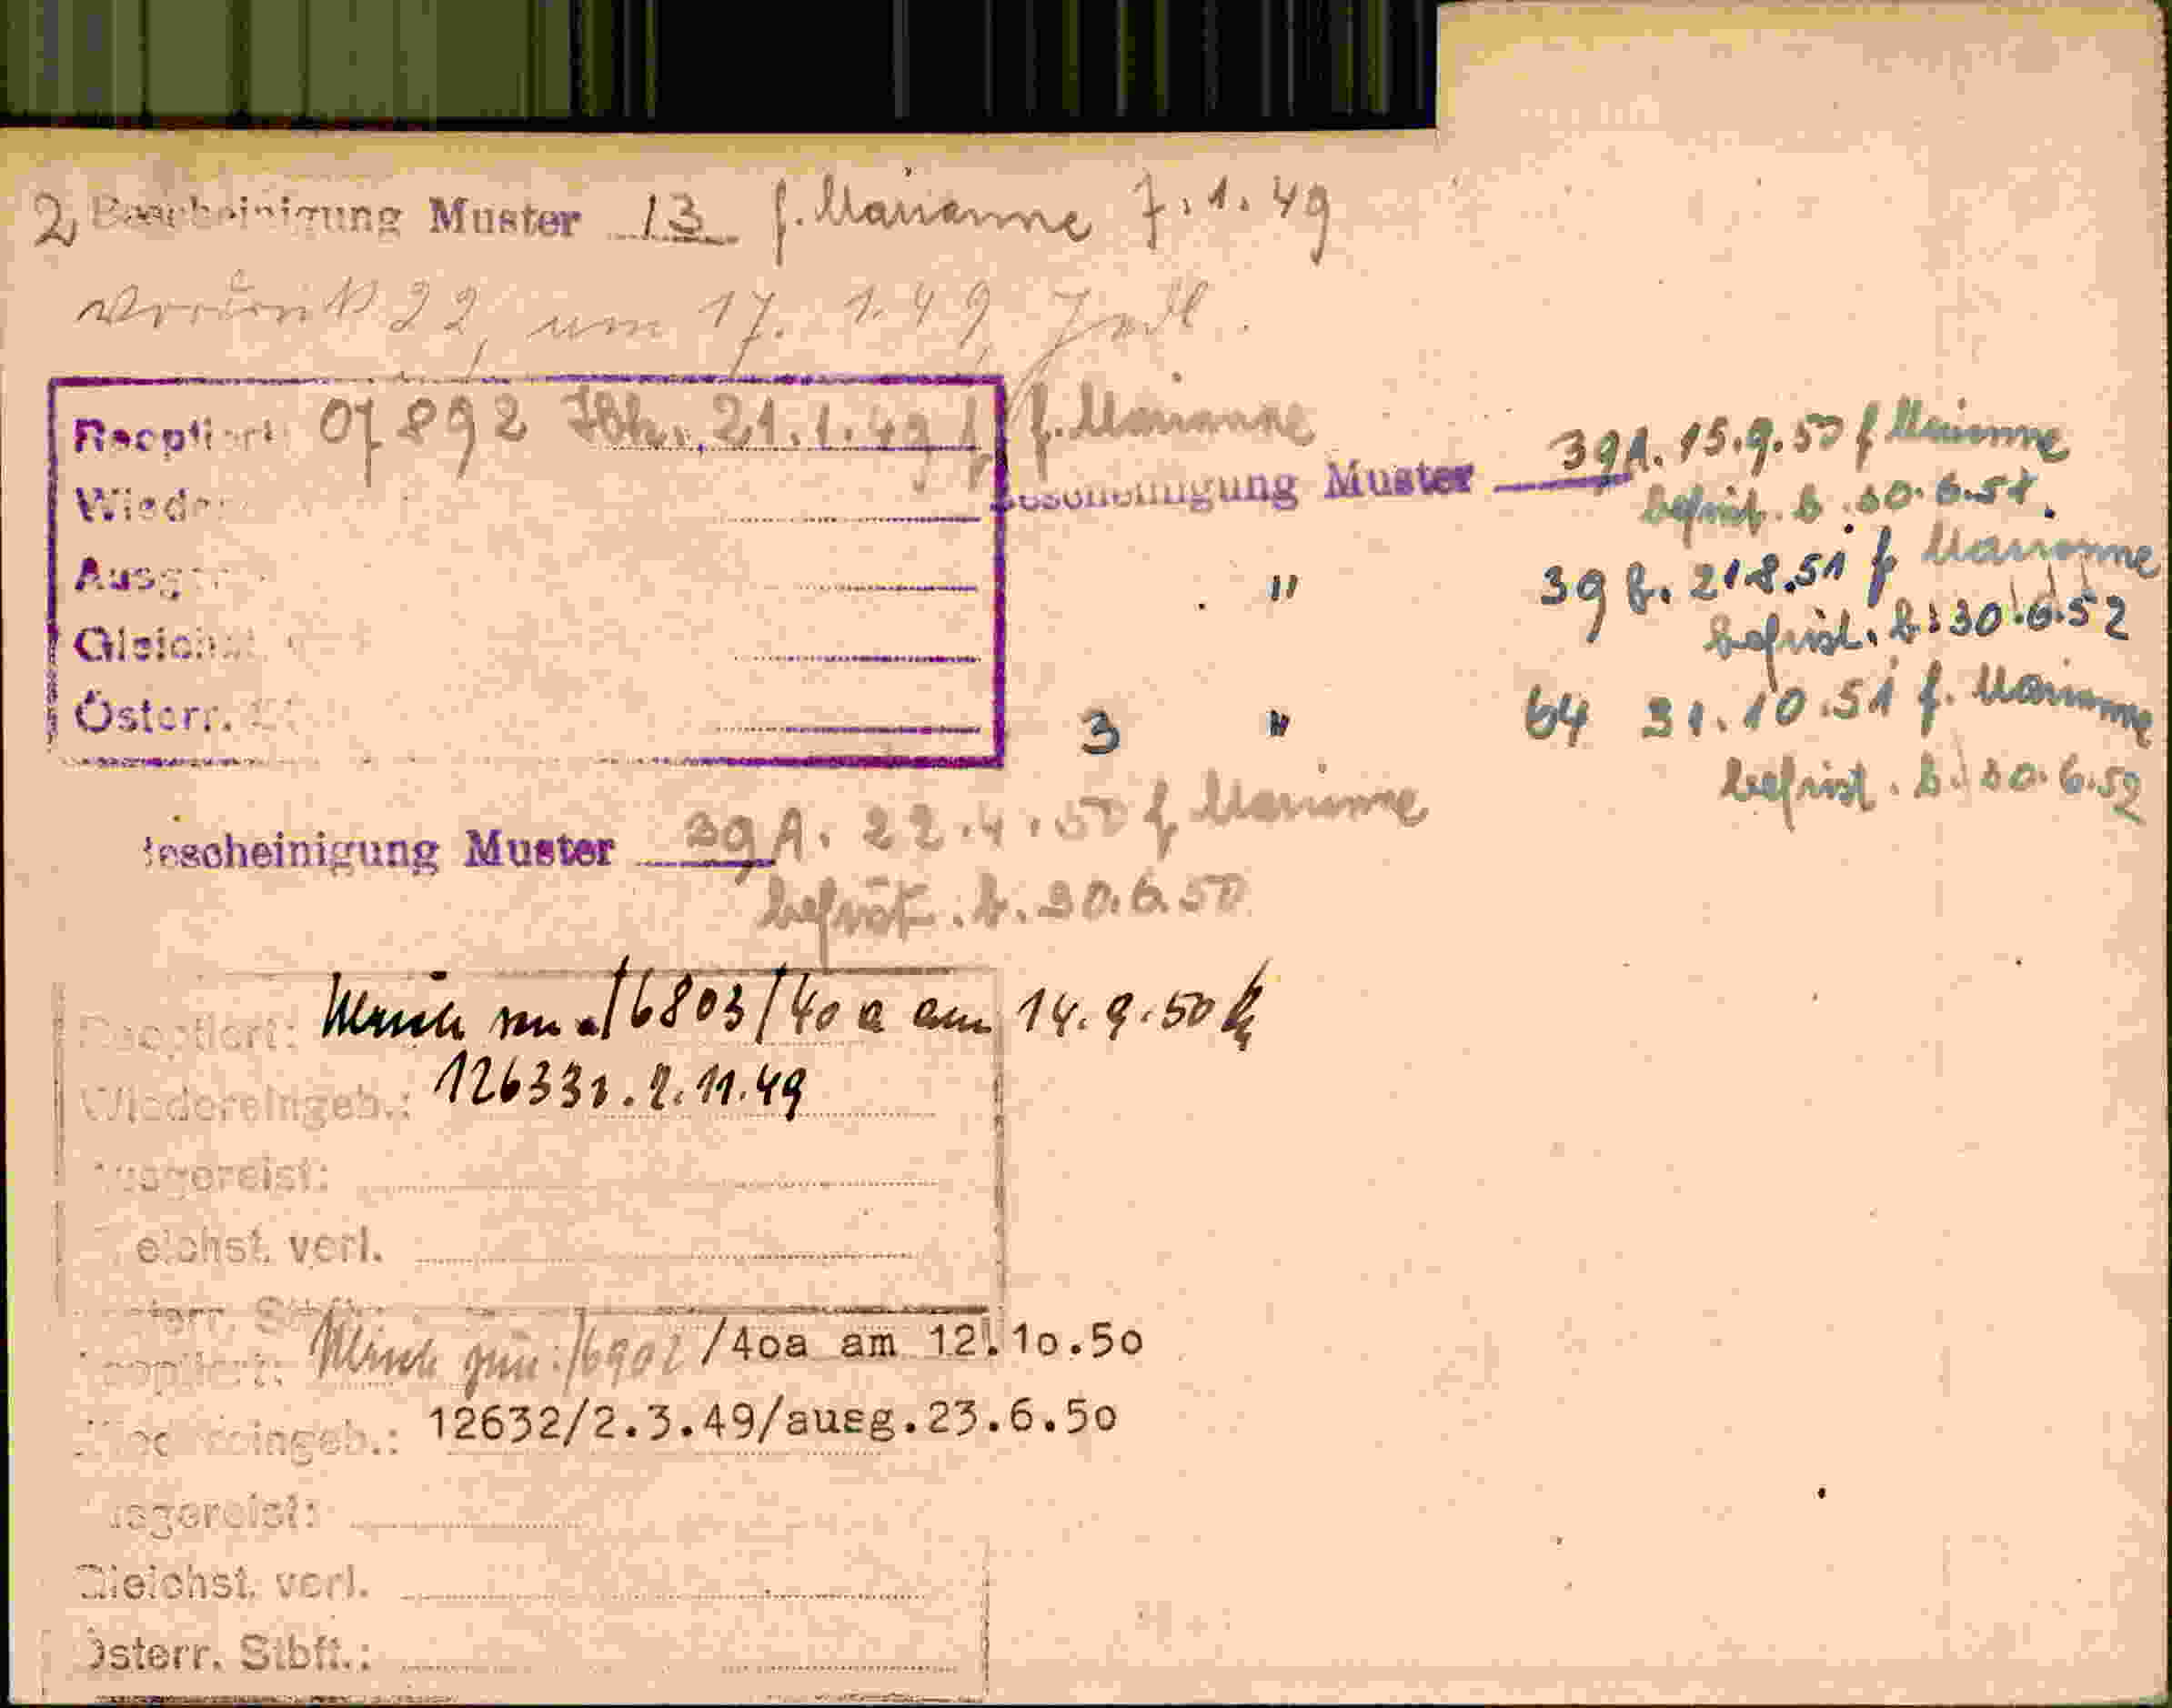 2 Bescheinigung Muster 13 f. Marianne 7.1.49
22, um 17. 1.49,
Reoptiert: 07892 21.1.49 f. Marianne
Wieder
Ausge
Gleichst
Österr.
Bescheinigung Muster 39A. 15.9.50 f Marianne
befrist. b. 30.6.51.
" 39 b. 21.8.51 f Marianne
befrist. b. 30.6.52
3 " 64 31.10.51 f. Marianne
befrist. b. 30.6.52
Bescheinigung Muster 39A. 22.4.50 f Marianne
befrist. b. 30.6.50
Reoptiert: 16803/40a am 14.9.50
Wiedereingeb.: 2.11.49
usgereist:
eichst. verl.
terr. Stbft.:
eoptiert: /40a am 12.10.50
Wiedereingeb.: 12632/2.3.49/ausg.23.6.50
usgereist:
Gleichst. verl.
Österr. Stbft.: